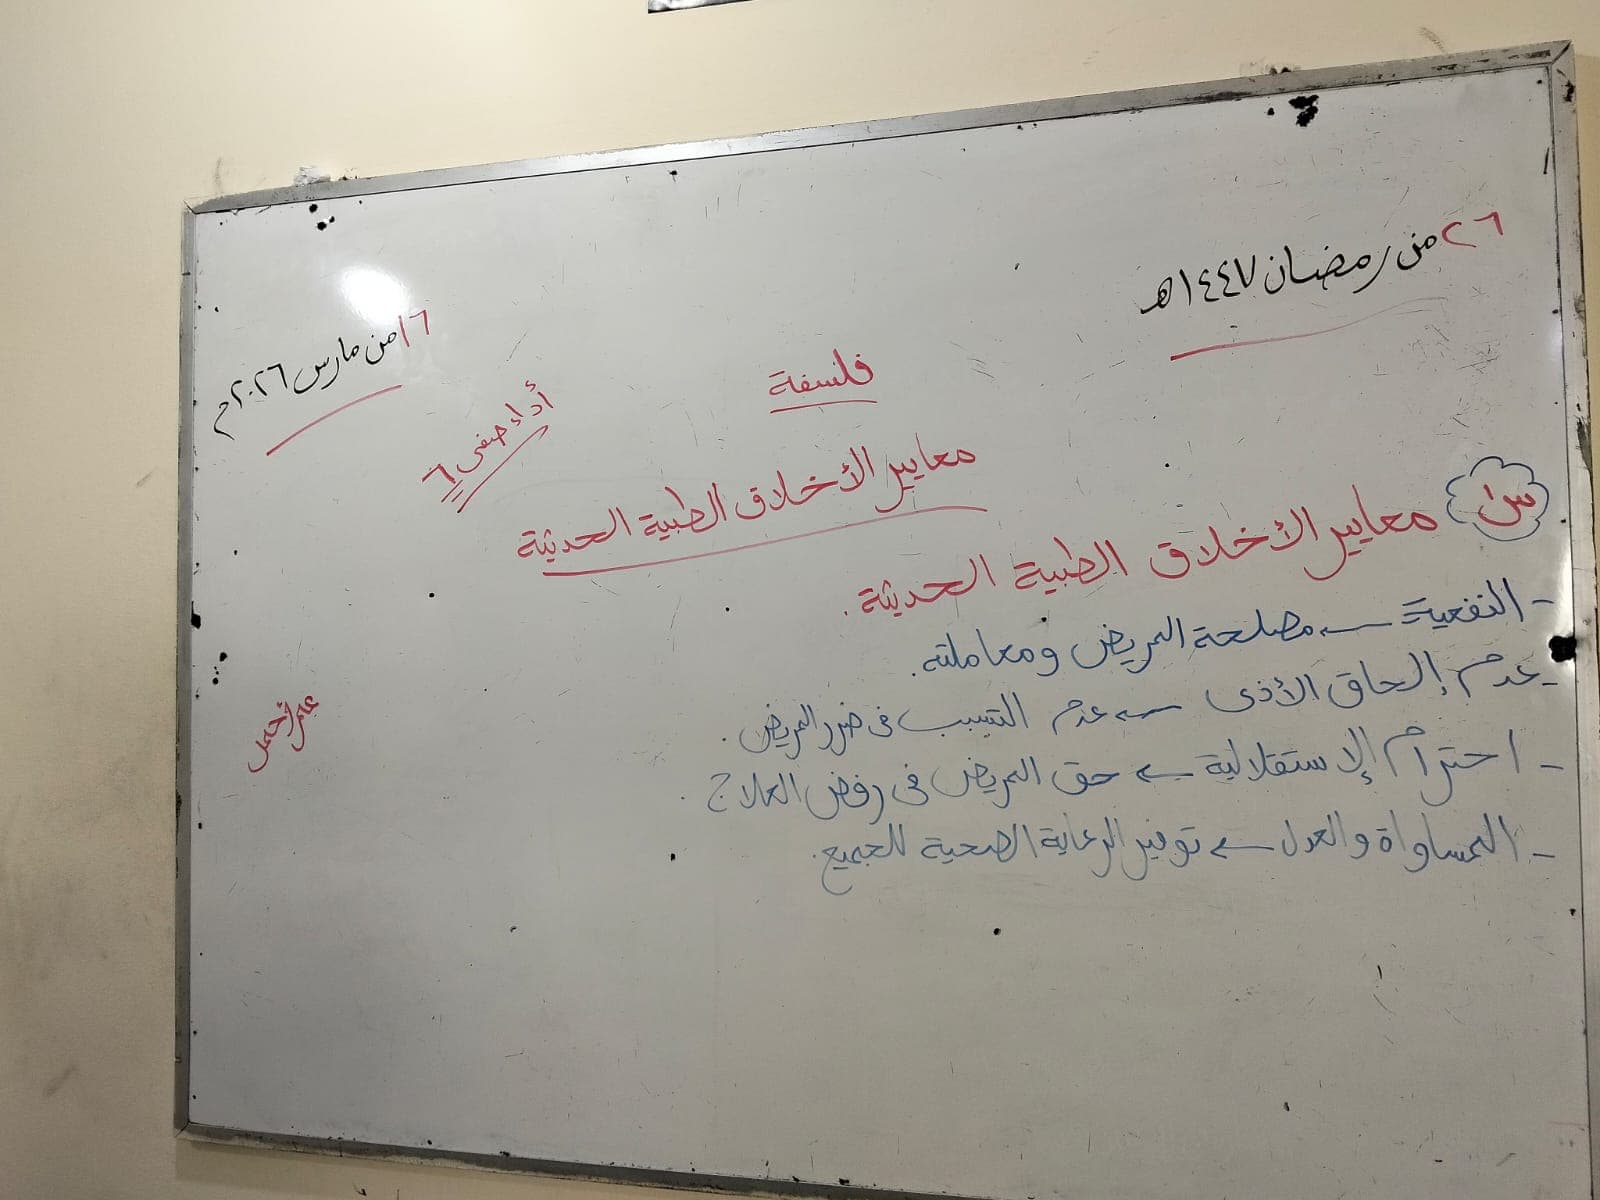 ٢٦ من رمضان ١٤٤٧هـ
١٦ من مارس ٢٠٢٦م
فلسفة
أداء صفى ٦
معايير الأخلاق الطبية الحديثة
س١ معايير الأخلاق الطبية الحديثة .
- النفعية ← مصلحة المريض ومعاملته .
- عدم إلحاق الأذى ← عدم التسبب فى ضرر المريض .
- احترام الإستقلالية ← حق المريض فى رفض العلاج .
- المساواة والعدل ← توفير الرعاية الصحية للجميع .